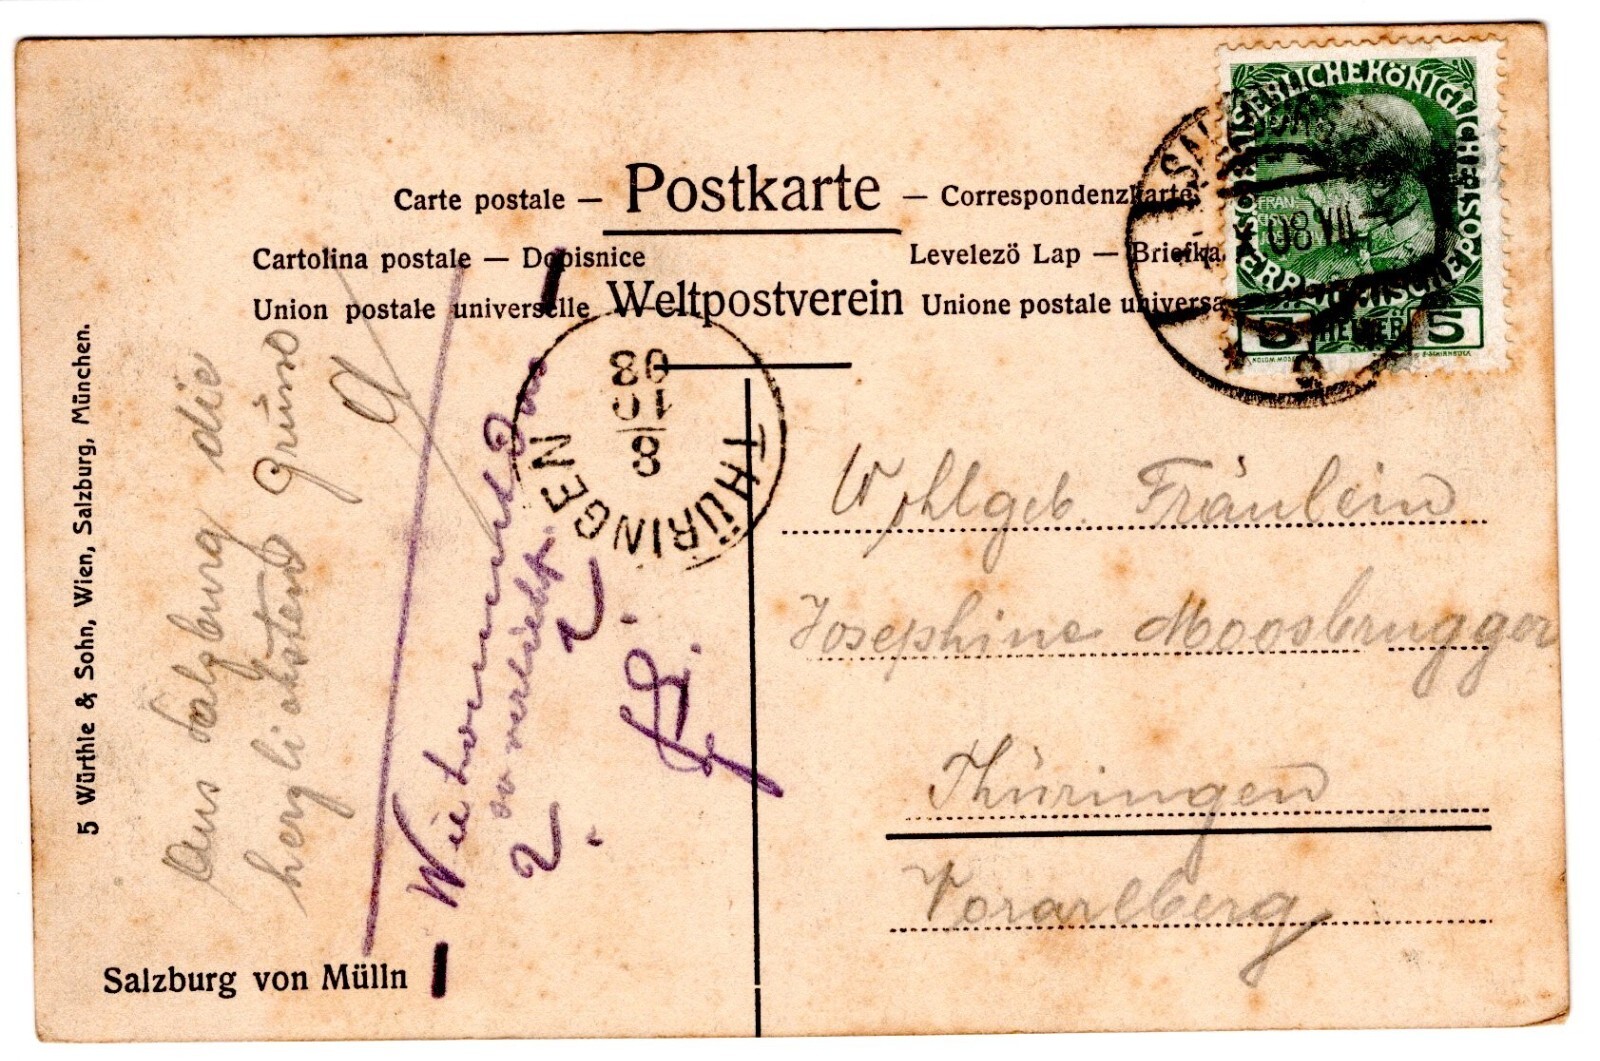 Carte postale — Postkarte — Correspondenzkarte
Cartolina postale — Dopisnice
Levelező Lap — Briefka
Union postale universelle Weltpostverein Unione postale universa
KAISERLICHE KÖNIGLICHE ÖSTERREICHISCHE POST
5 HELLER 5
08 VII
THÜRINGEN
8
10
08
Wohlgeb. Fräulein
Josephine Moosbrugger
Thüringen
Vorarlberg
Aus Salzburg die
herzlichsten Grüße
Wie kommend
so verliebt.
5 Würthle & Sohn, Wien, Salzburg, München.
Salzburg von Mülln